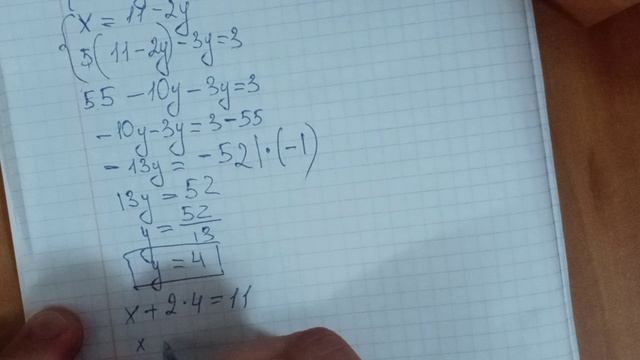 x = 11 - 2y
5(11 - 2y) - 3y = 3
55 - 10y - 3y = 3
-10y - 3y = 3 - 55
-13y = -52 | · (-1)
13y = 52
y = 52/13
y = 4
x + 2 · 4 = 11
x